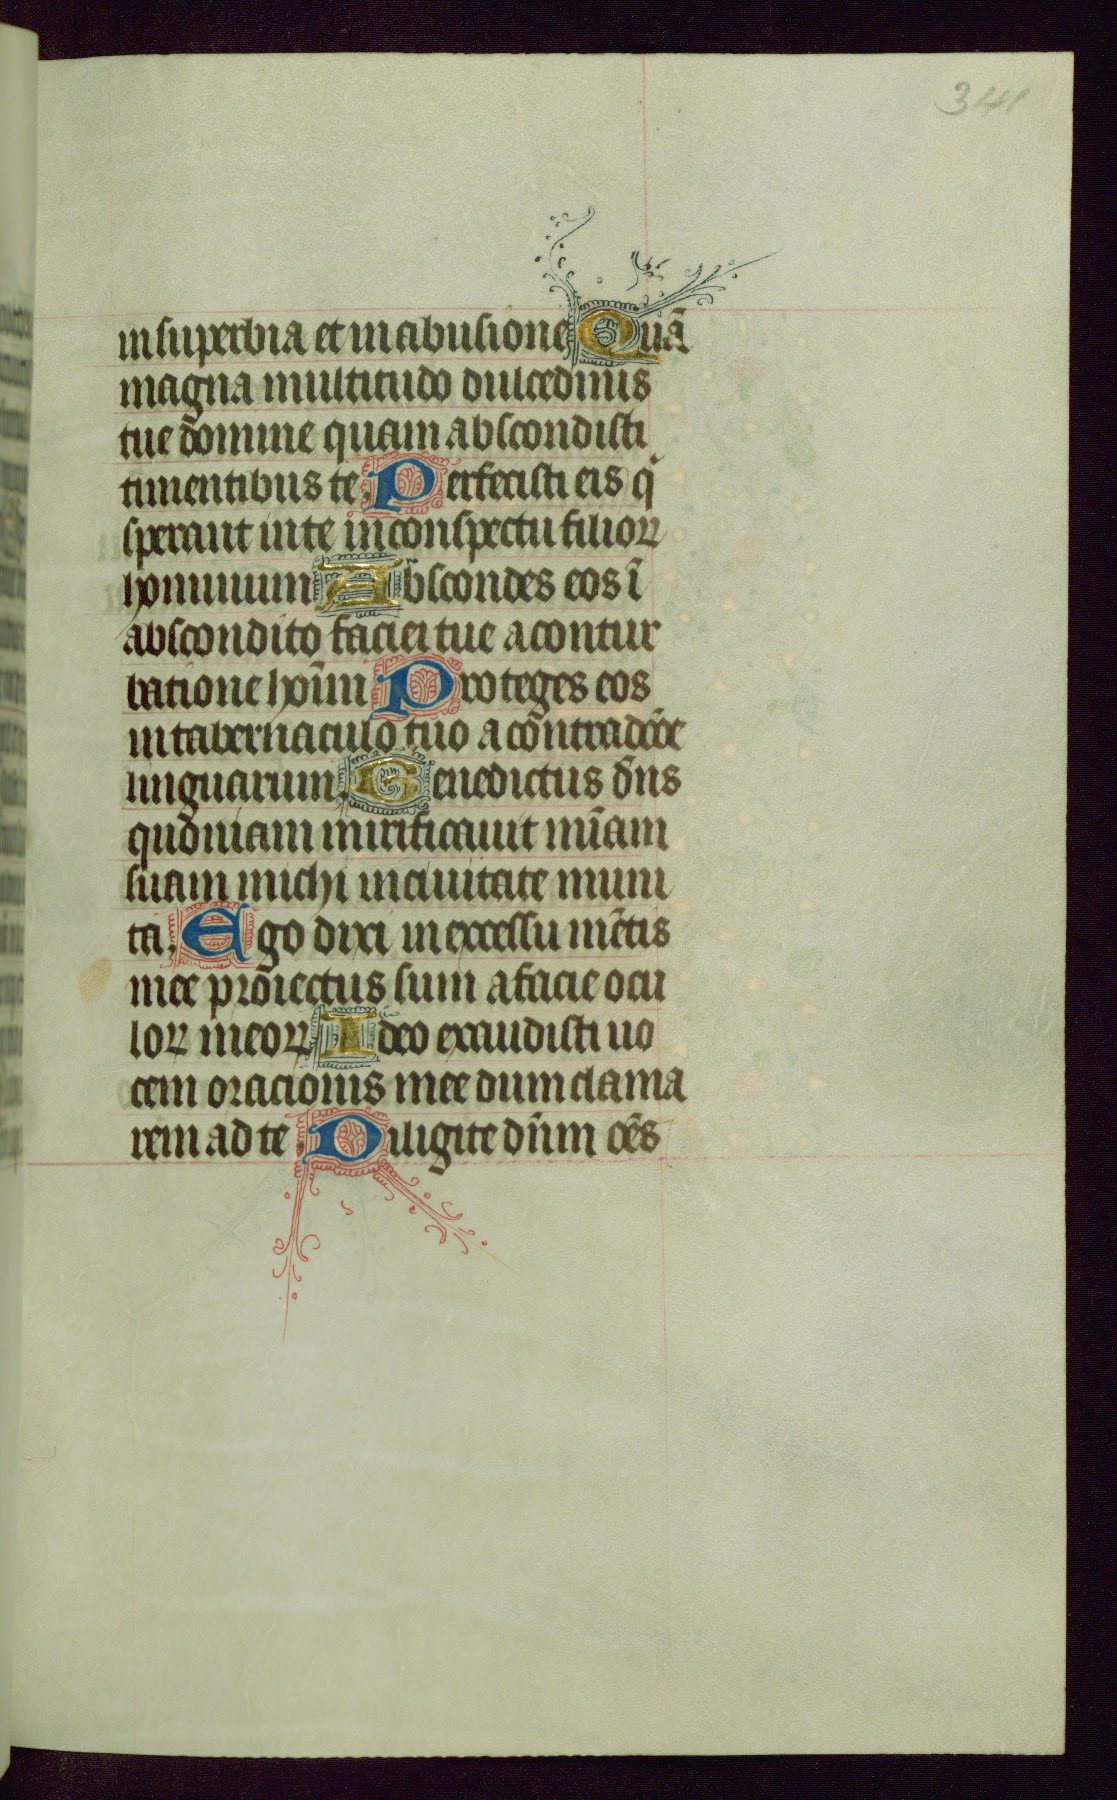 341
in superbia et in abusione Quā
magna multitudo dulcedinis
tue domine quam abscondisti
timentibus te. Perfecisti eis q
sperant in te in conspectu filioꝝ
hominum Abscondes eos ī
abscondito faciei tue a contur
batione hoīm Proteges eos
in tabernaculo tuo a contradcōe
linguarum. Benedictus dn̄s
quoniam mirificauit mīam
suam michi in ciuitate muni
ta. Ego dixi in excessu mētis
mee proiectus sum a facie ocu
loꝝ meoꝝ Ideo exaudisti uo
cem oracionis mee dum clama
rem ad te. Diligite dn̄m oēs